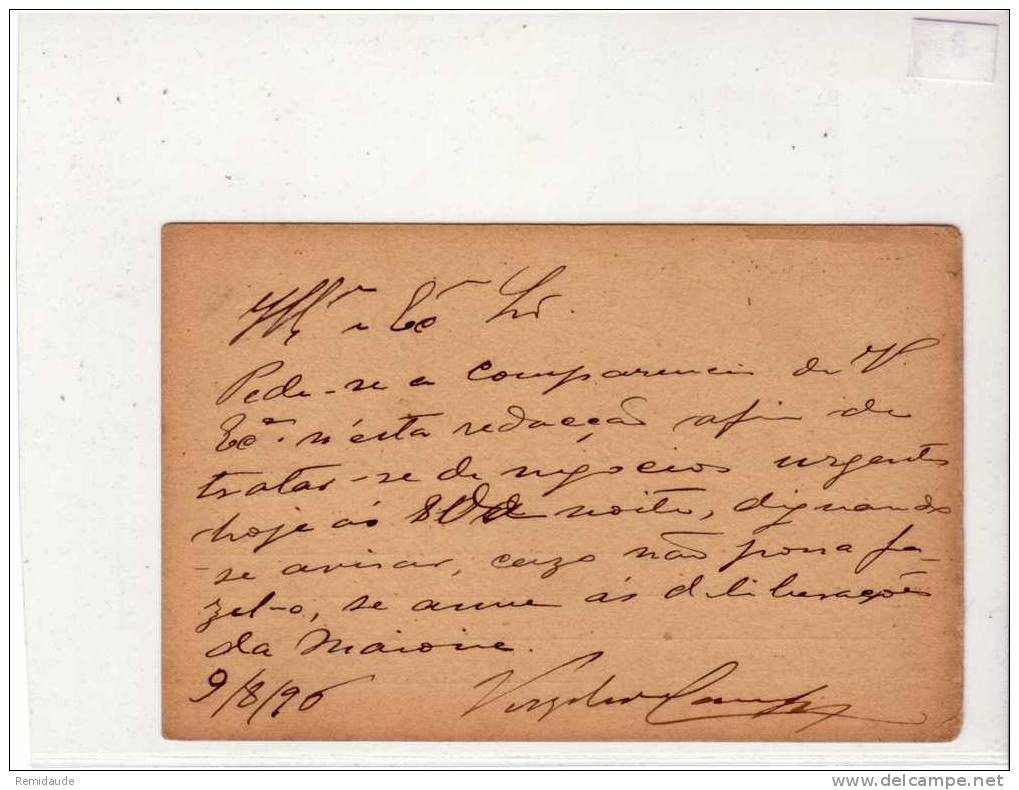 Illmº e Exº Snr.
Pede-se a comparencia de V.
Exª n'esta redacção afim de
tratar-se de negocios urgentes
hoje ás 8 da noite, dignando
-se avisar, cazo não possa fa-
zel-o, se annue ás deliberações
da Maioria.
9/8/96 Virgilio
Remidaude
delcampe.net